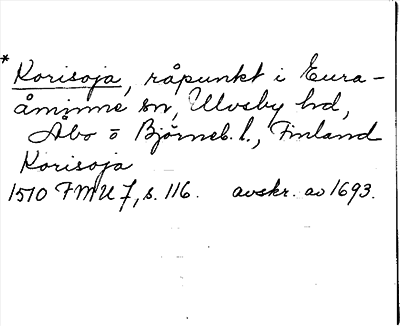 * Korisoja, råpunkt i Eura-
åminne sn, Ulvsby hd,
Åbo o Björneb. l., Finland
Korisoja
1510 FMU 7, s. 116. avskr. av 1693.